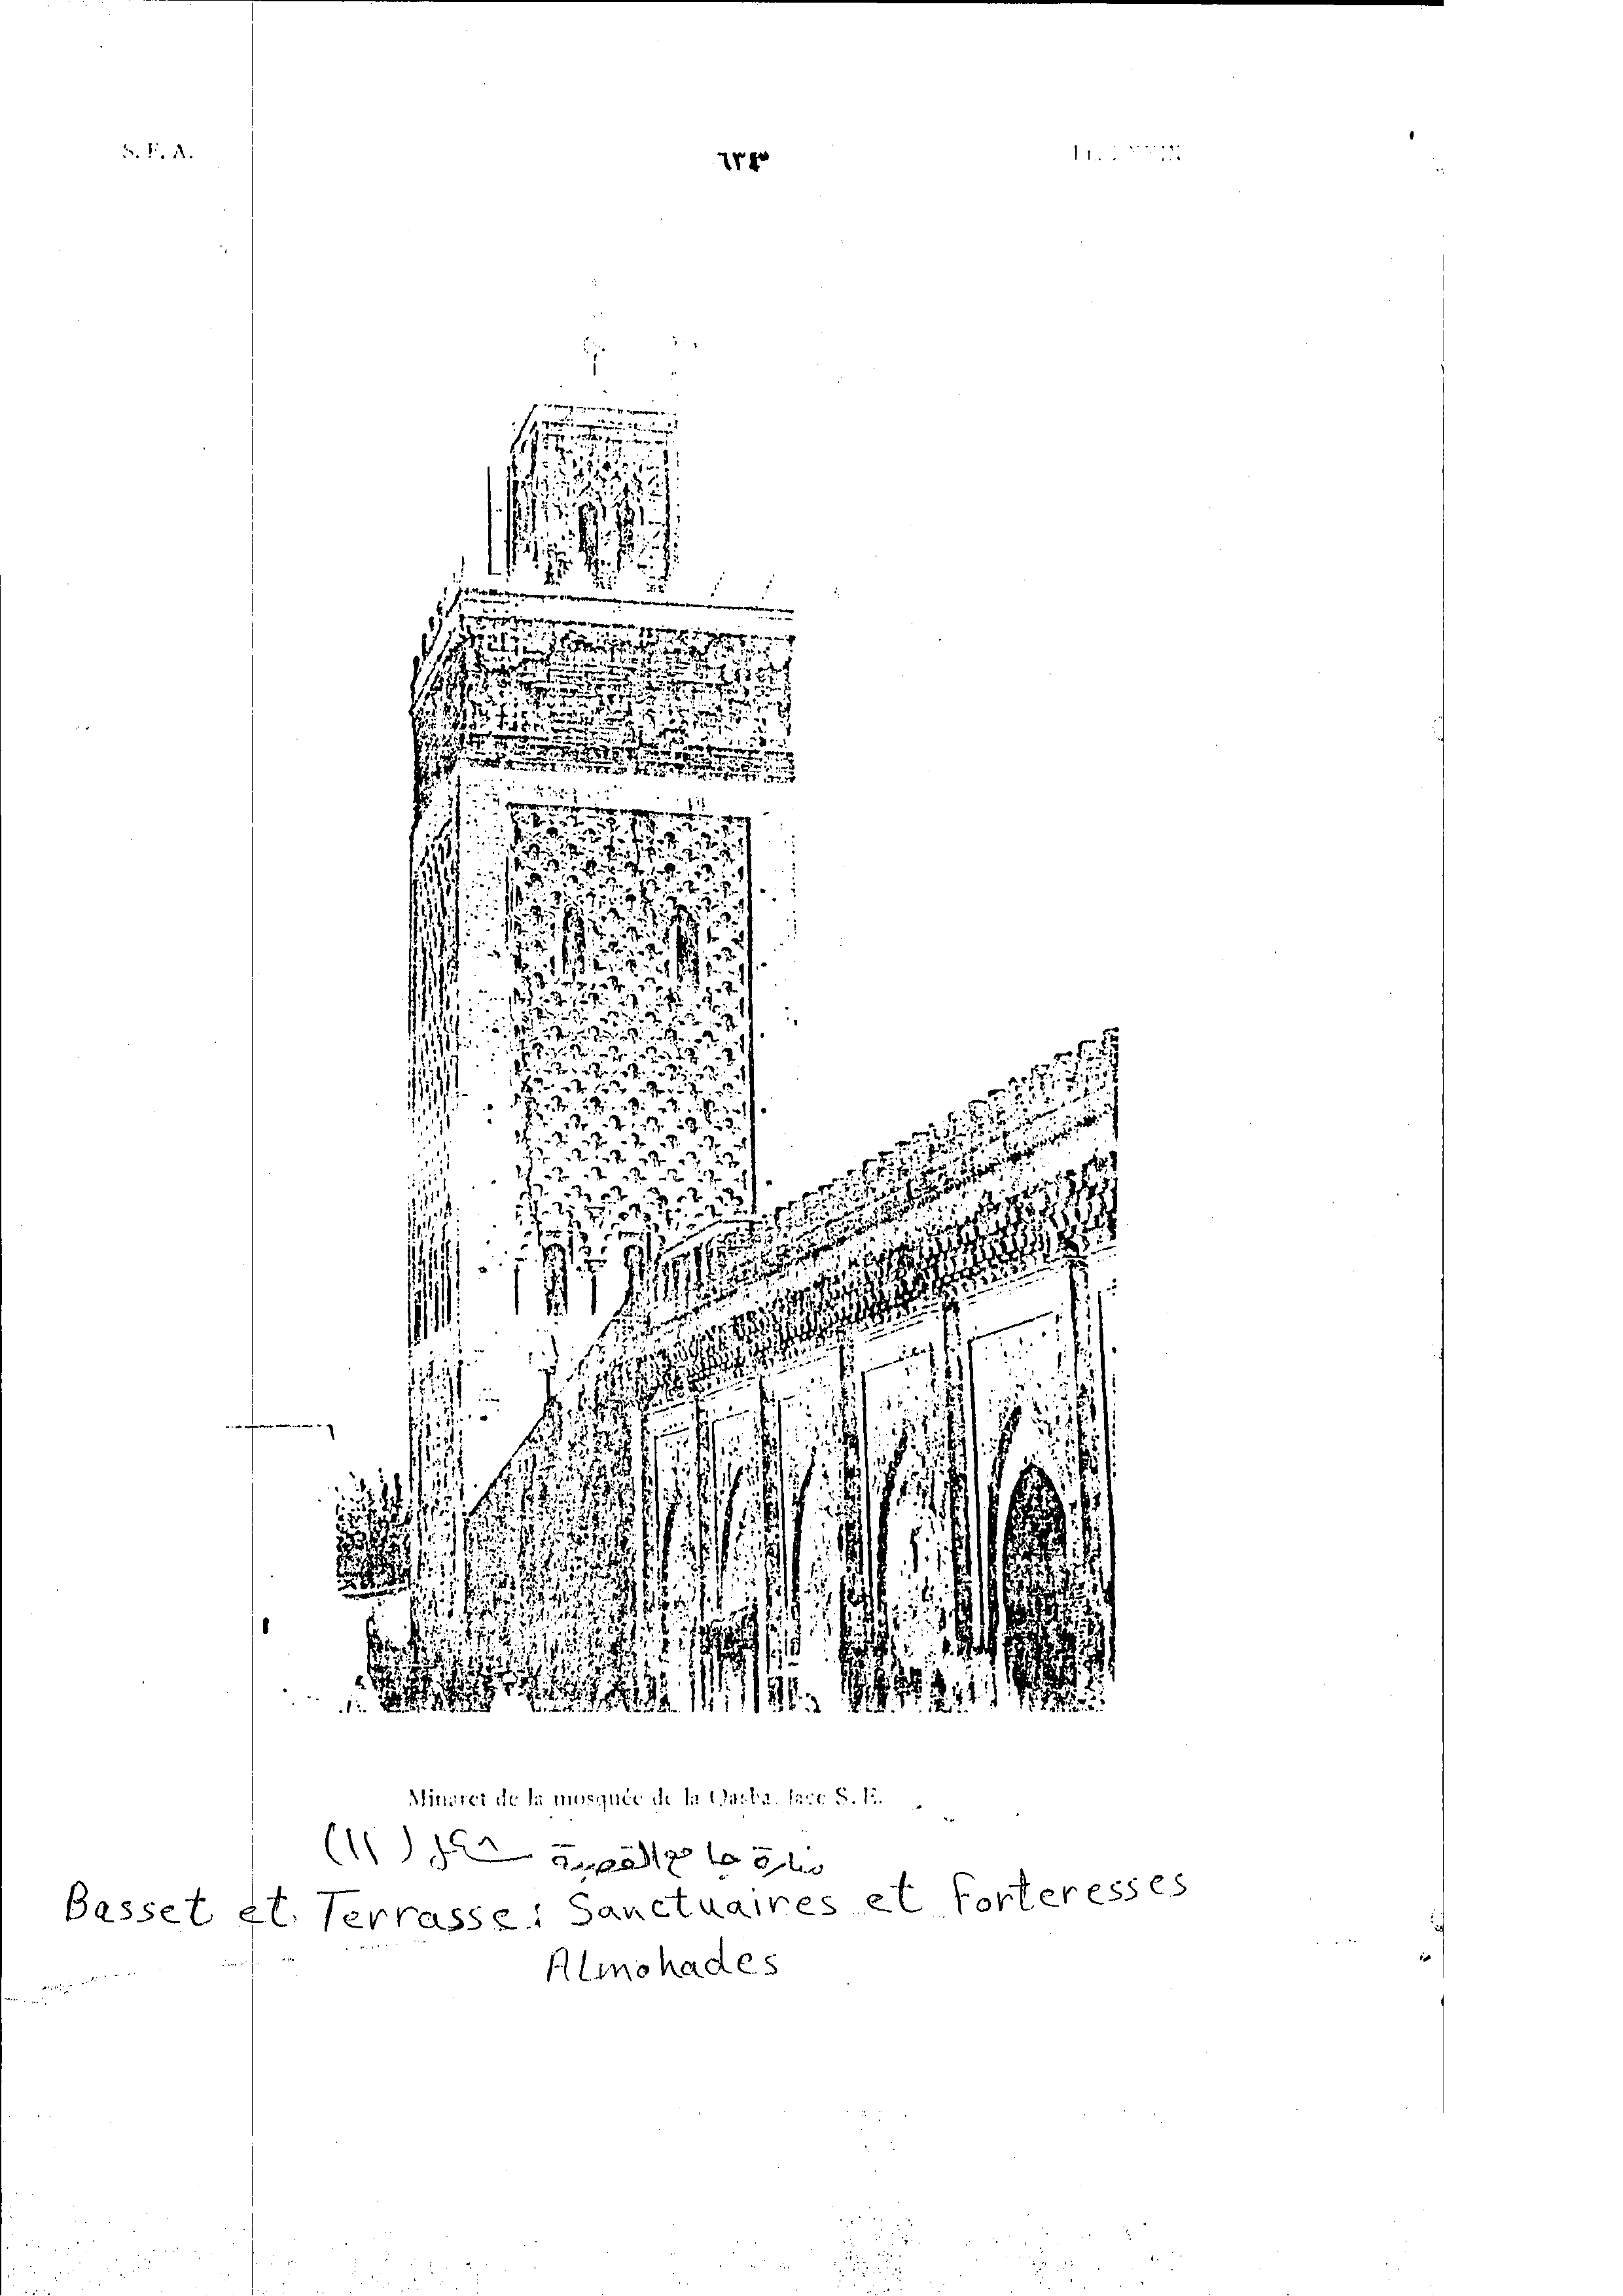 S. F. A.
Minaret de la mosquée de la Qasba, face S. E.
منارة جامع القصبة شكل (١١)
Basset et Terrasse: Sanctuaires et Forteresses
Almohades